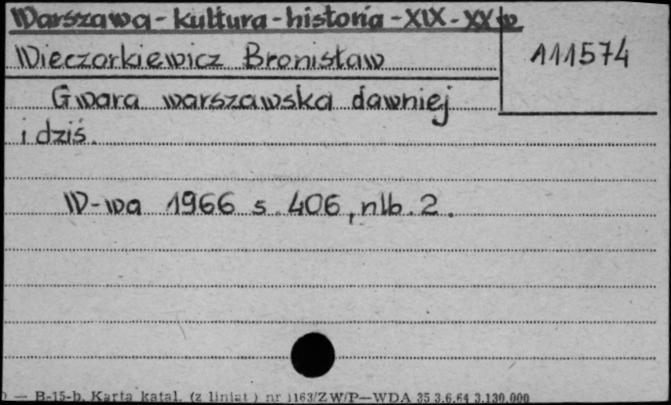 Warszawa - kultura - historia - XIX - XX w
Wieczorkiewicz Bronisław
111574
Gwara warszawska dawniej
i dziś.
W-wa 1966 s. 406, nlb. 2.
— B-15-b. Karta katal. (z liniat.) nr 1163/ZW/P—WDA 35 3.6.64 3.130.000